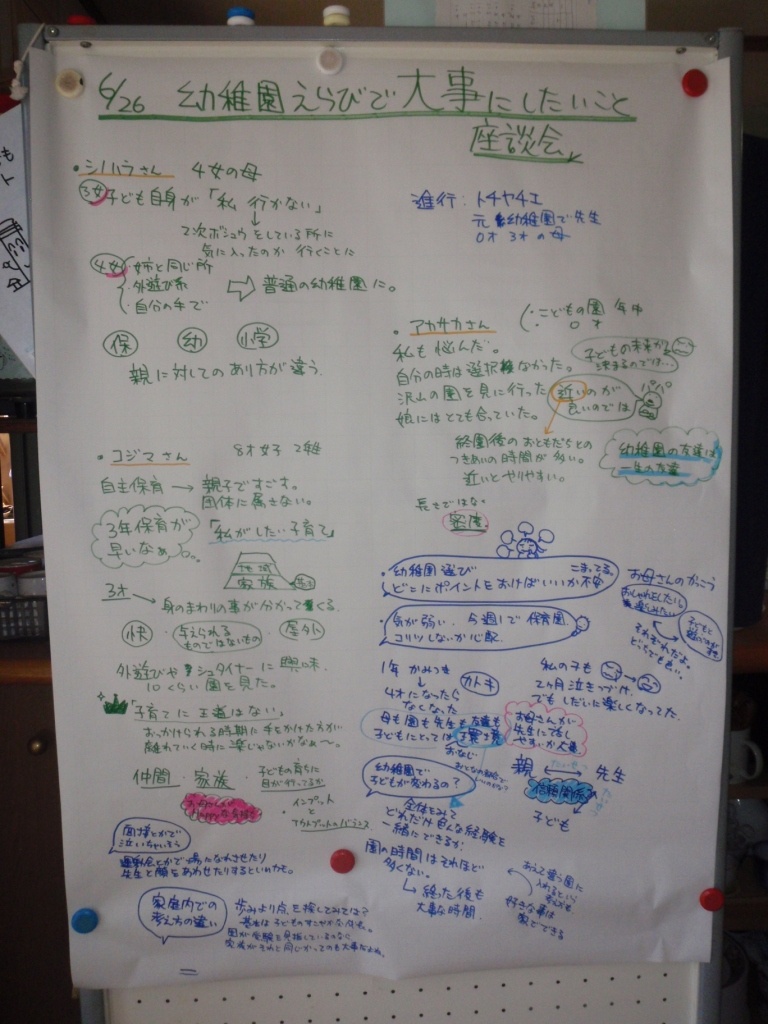 6/26 幼稚園えらびで大事にしたいこと
座談会
・シノハラさん 4女の母
3女 子ども自身が「私 行かない」
↓
2次ボシュウをしている所に
気に入ったのか 行くことに
4女 ・姉と同じ所
・外遊び系
・自分の手で
⇨ 普通の幼稚園に。
保 幼 小学
親に対してのあり方が違う。
進行:トチヤチエ
元 幼稚園で先生
0才 3才の母
・アカサカさん
・こどもの園 年中
・0才
私も悩んだ。
自分の時は選択なかった。
沢山の園を見に行った
娘にはとても合っていた。
子どもの未来が
決まるのでは…
近いのが
良いのでは
パパ
終園後のおともだちとの
つきあいの時間が多い。
近いとやりやすい。
幼稚園の友達は
一生の友達
長さではない
密度
・コジマさん 8才女子 2年
自主保育 → 親子ですごす。
団体に属さない。
3年保育が
早いなぁ。
「私がしたい子育て」
地域
家族
3才
→ 身のまわりの事が分かってくる。
快 ・与えられる
ものではないもの ・屋外
外遊びやシュタイナーに興味
10くらい園を見た。
「子育てに王道はない」
おっかけられる時期に手をかけた方が
離れていく時に楽じゃないかなぁ〜。
仲間・家族・
子どもの育ちに
目が行ってるか
インプット
と
アウトプットのバランス
面接とかで
泣いちゃいそう
運動会とかで場になれさせたり
先生と顔をあわせたりするといいかも。
家庭内での
考え方の違い
歩みより点を探してみては?
・幼稚園選び こまってる。
どこにポイントをおけばいいか不安
気が弱い。今週1で保育園
コリツしないか心配
お母さんのかっこう
おしゃれをしたい
楽しみたい
それぞれだよ。
どっちでも良い。
1年 かみつき
↓
4才になったら
なくなった
カトキ
母も園も先生も友達も
子どもにとっては環境
おなじ
私の子も
2ヶ月泣きつづけ
でもしだいに楽しくなってた
お母さんが
先生に話し
やすいか大事
親 ⟷ 先生
信頼関係
子ども
幼稚園で
子どもが変わるの?
全体をみて
どれだけ色んな経験を
一緒にできるか
園の時間はそれほど
多くない。
↳ 終った後も
大事な時間
あえて違う園に
入れるという
好きな事は
家でできる